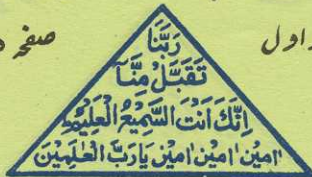 اول
صفحہ
رَبَّنَا
تَقَبَّلْ مِنَّا
اِنَّكَ اَنْتَ السَّمِيْعُ الْعَلِيْمُ
اٰمِيْن اٰمِيْن اٰمِيْن يَارَبَّ الْعٰلَمِيْنَ